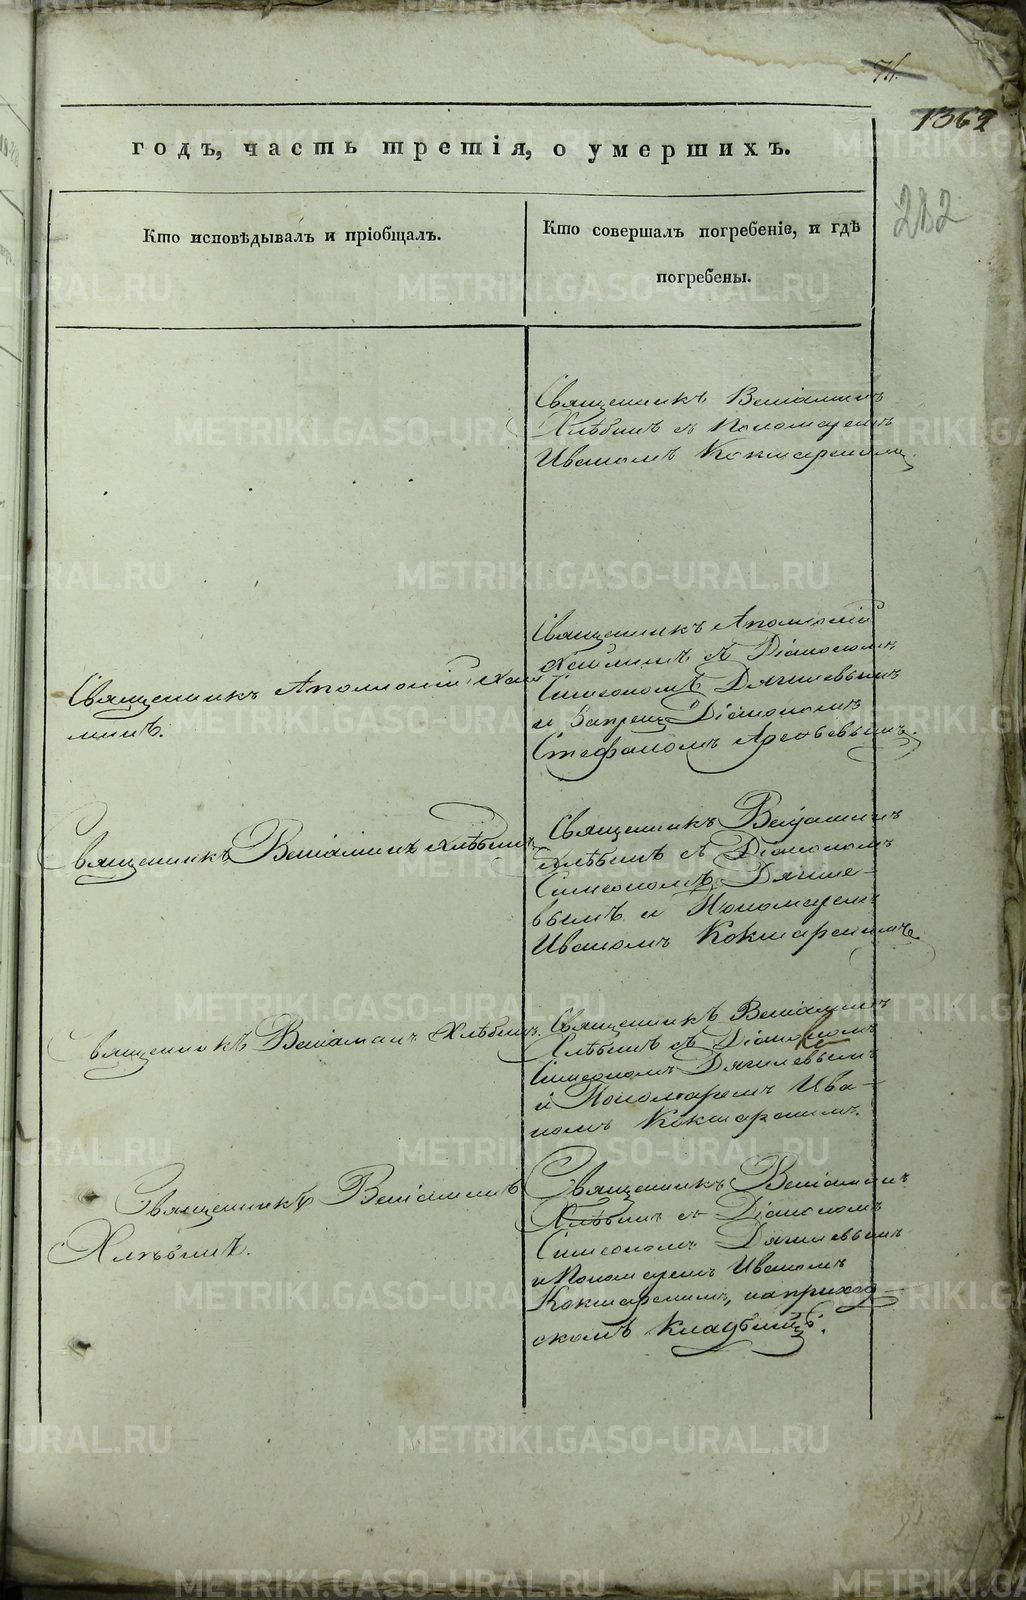 74.
1362
282
годъ, часть третія, о умершихъ.
Кто исповѣдывалъ и пріобщалъ.
Кто совершалъ погребеніе, и гдѣ
погребены.
Священникъ Веніаминъ
Хлѣбинъ съ Пономаремъ
Иваномъ Кокшарскимъ.
Священникъ Аполлоній
съ Діакономъ
Симеономъ Дягилевымъ
и Запрещ. Діакономъ
Стефаномъ Арефьевымъ.
Священникъ Аполлоній
минъ.
Священникъ Веніаминъ Хлѣбинъ
Священникъ Веніаминъ
Хлѣбинъ съ Діакономъ
Симеономъ Дягиле-
вымъ и Пономаремъ
Иваномъ Кокшарскимъ
Священникъ Веніаминъ Хлѣбинъ.
Священникъ Веніаминъ
Хлѣбинъ съ Діакономъ
Симеономъ Дягилевымъ
и Пономаремъ Ива-
номъ Кокшарскимъ.
Священникъ Веніаминъ
Хлѣбинъ.
Священникъ Веніаминъ
Хлѣбинъ съ Діакономъ
Симеономъ Дягилевымъ
и Пономаремъ Иваномъ
Кокшарскимъ, на приход-
скомъ кладбищѣ.
METRIKI.GASO-URAL.RU